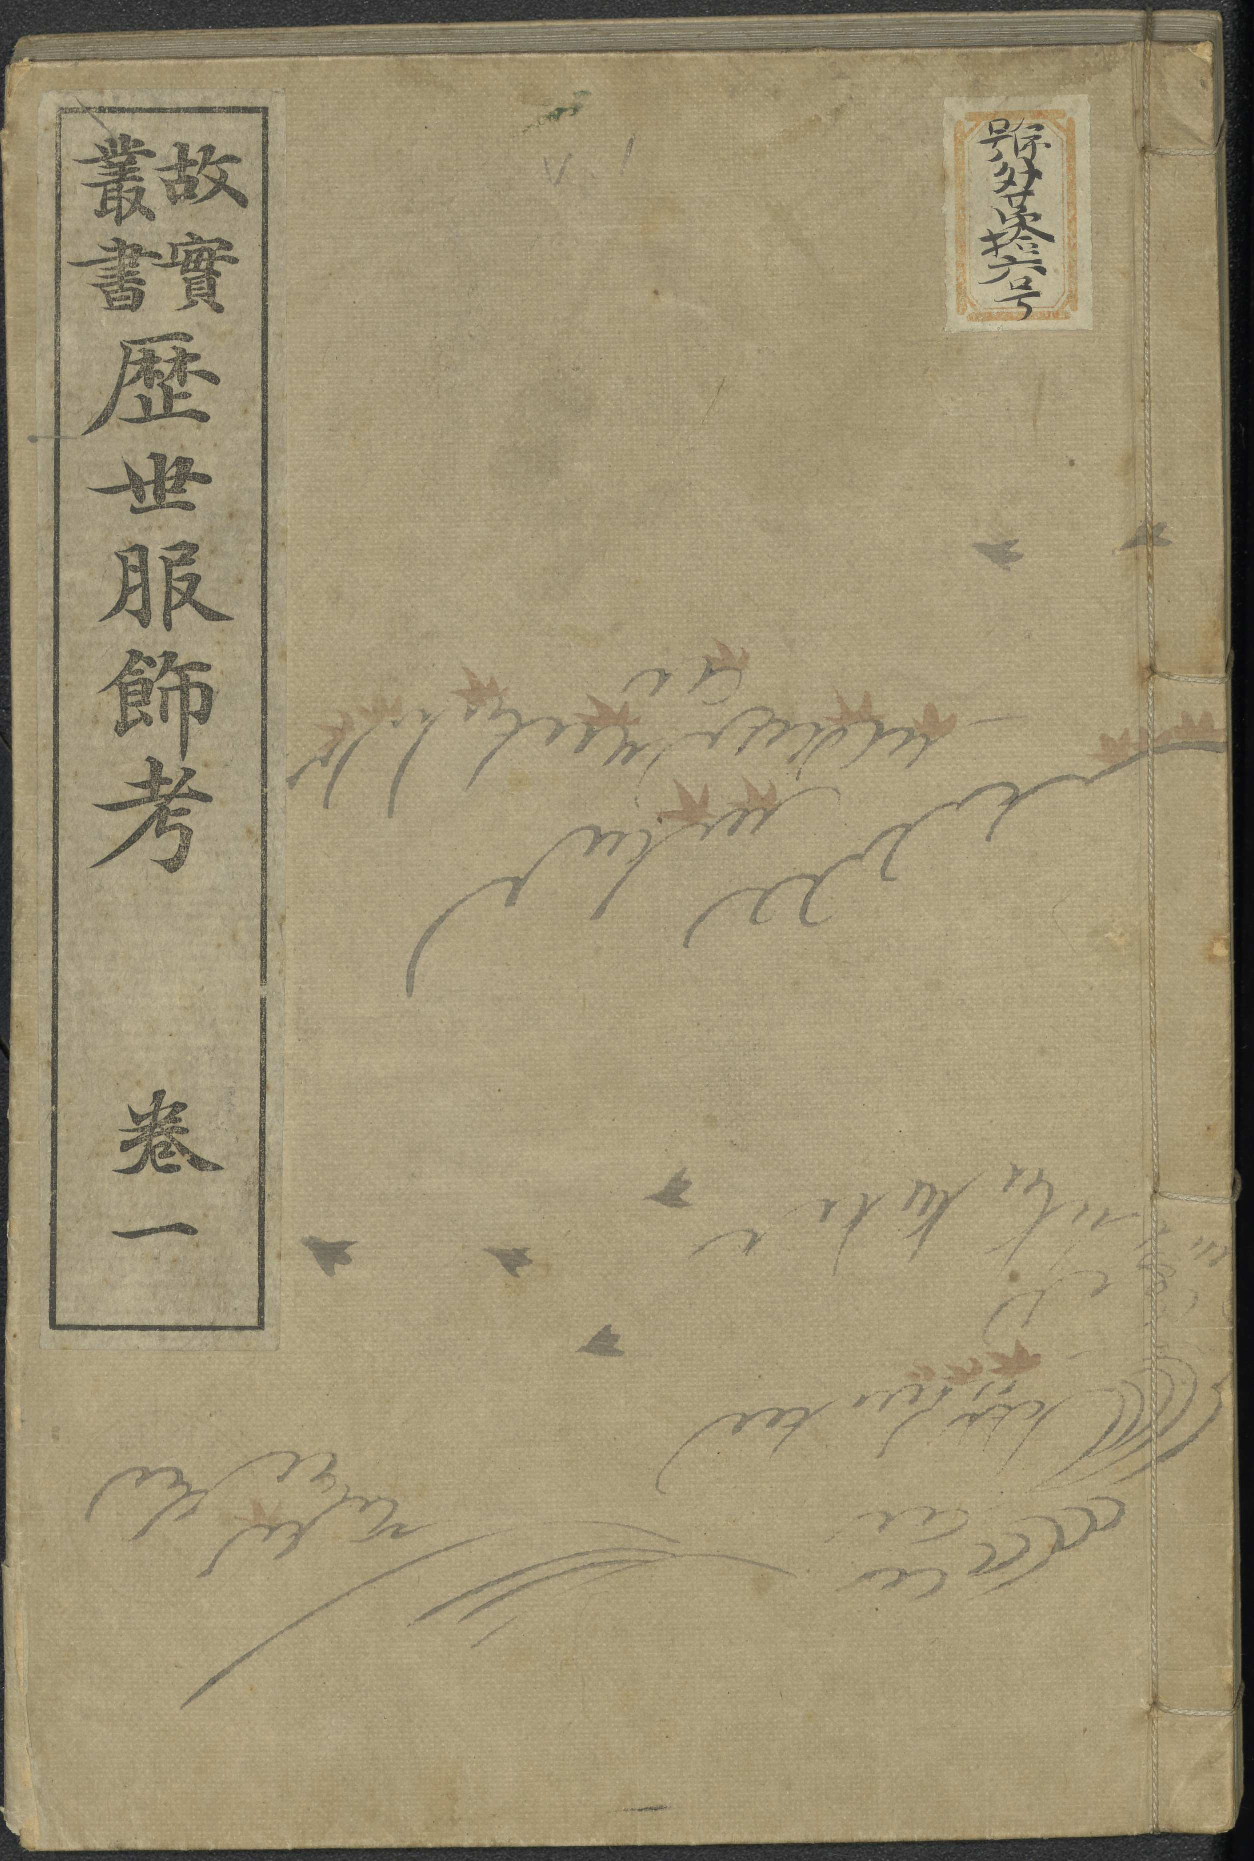 故實
叢書
歴世服飾考
卷一
V.1